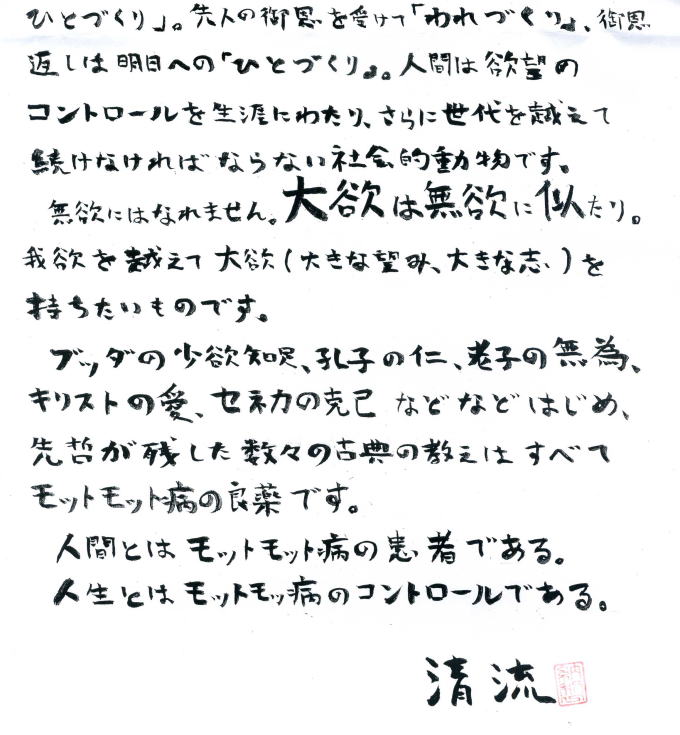 ひとづくり」。先人の御恩を受けて「われづくり」、御恩
返しは明日への「ひとづくり」。人間は欲望の
コントロールを生涯にわたり、さらに世代を越えて
続けなければならない社会的動物です。
無欲にはなれません。大欲は無欲に似たり。
我欲を越えて大欲(大きな望み、大きな志)を
持ちたいものです。
ブッダの少欲知足、孔子の仁、老子の無為、
キリストの愛、セネカの克己などなどはじめ、
先哲が残した数々の古典の教えはすべて
モットモット病の良薬です。
人間とはモットモット病の患者である。
人生とはモットモッ病のコントロールである。
清流